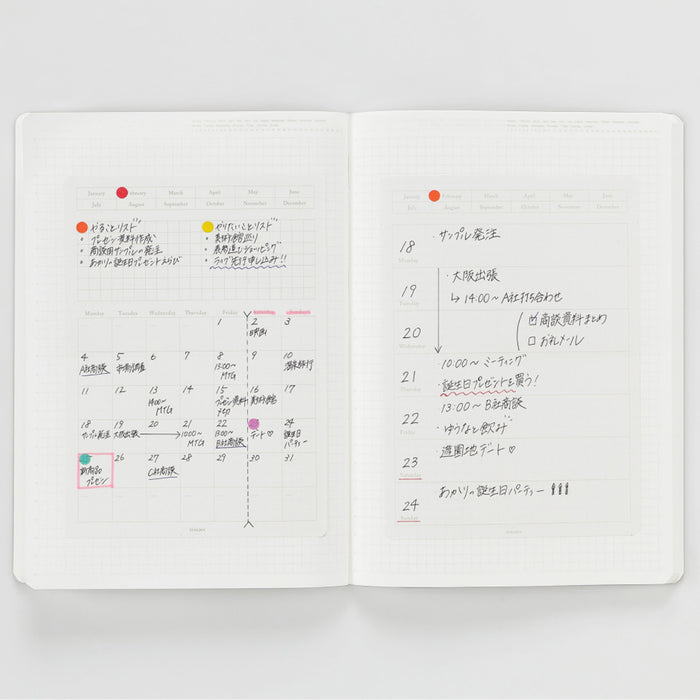 January February March April May June
July August September October November December
やることリスト
・プレゼン資料作成
・商談用サンプルの発注
・あかりの誕生日プレゼントえらび
やりたいことリスト
・美術館巡り
・表参道でショッピング
・ライブ先行申し込み!!
Monday Tuesday Wednesday Thursday Friday
1 2 3
映画
4 5 6 7 8 9 10
A社商談
13:00〜
MTG
温泉旅行
11 12 13 14 15 16 17
14:00〜
MTG
プレゼン資料
美術館
18 19 20 21 22 24
サンプル発注 大阪出張
10:00〜
MTG
13:00〜
B社商談
デート♡
誕生日
パーティー
26 27 28 29 30 31
新商品
プレゼン
C社商談
January February March April May June
July August September October November December
18 ・サンプル発注
Monday
19 ・大阪出張
↳ 14:00〜 A社打ち合わせ
20 ☑ 商談資料まとめ
Wednesday
□ お礼メール
21 ・10:00〜 ミーティング
Thursday
・誕生日プレゼントを買う!
22 ・13:00〜 B社商談
Friday
・ゆうなと飲み
23 ・遊園地デート♡
Saturday
24 あかりの誕生日パーティー
Sunday